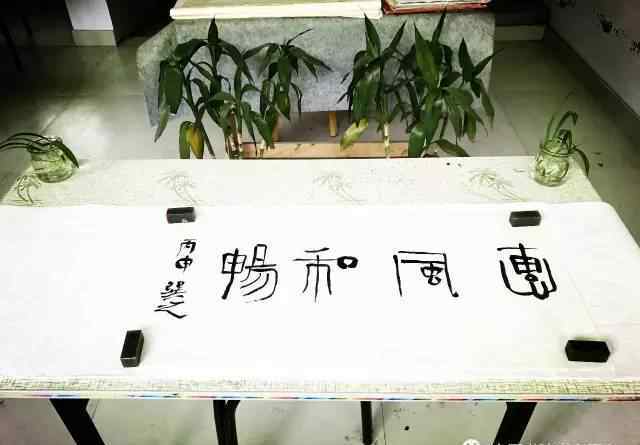 惠風和暢
丙申